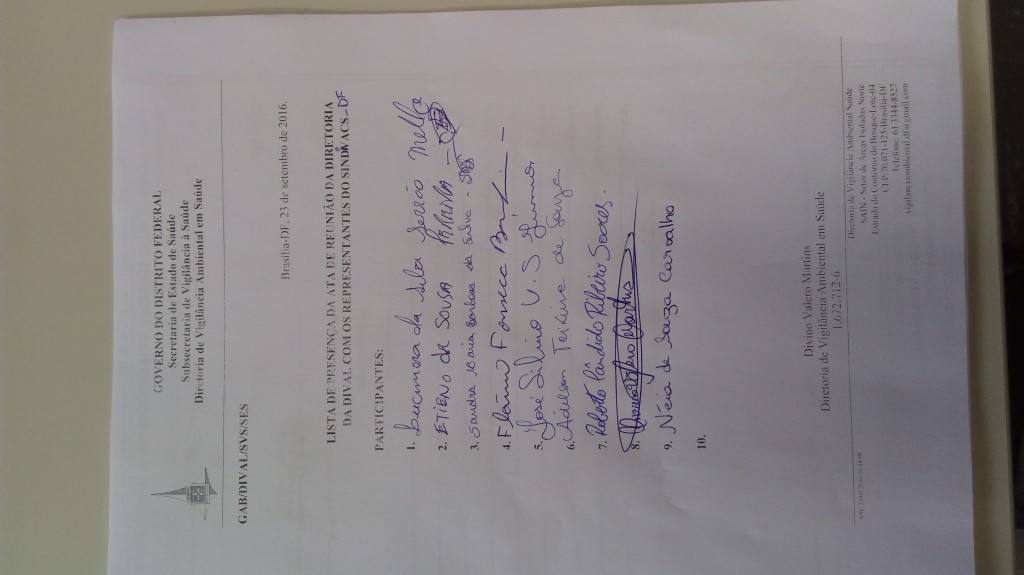 GOVERNO DO DISTRITO FEDERAL
Secretaria de Estado de Saúde
Subsecretaria de Vigilância à Saúde
Diretoria de Vigilância Ambiental em Saúde
GAB/DIVAL/SVS/SES
Brasília-DF, 23 de setembro de 2016.
LISTA DE PRESENÇA DA ATA DE REUNIÃO DA DIRETORIA
DA DIVAL COM OS REPRESENTANTES DO SINDIVACS-DF
PARTICIPANTES:
1. Lucimara da Silva
2. ETIENO de SOUSA
3. Sandra Maria Barbosa da Silva -
4. Flávio Fonseca
5. José Silvino V. S Júnior
6. Adilson Teixeira de Souza
7. Roberto Cândido Ribeiro Soares.
8.
9. Néia de Souza Carvalho
10.
Divino Valero Martins
Diretoria de Vigilância Ambiental em Saúde
1.672.712-6
Diretoria de Vigilância Ambiental Saúde
SAIN - Setor de Áreas Isoladas Norte
Estrada do Contorno do Bosque-Lote-04
CEP:70.071-125-Brasília-DF
Telefone: 61 3344-8527
vigilanciaambiental.df@gmail.com